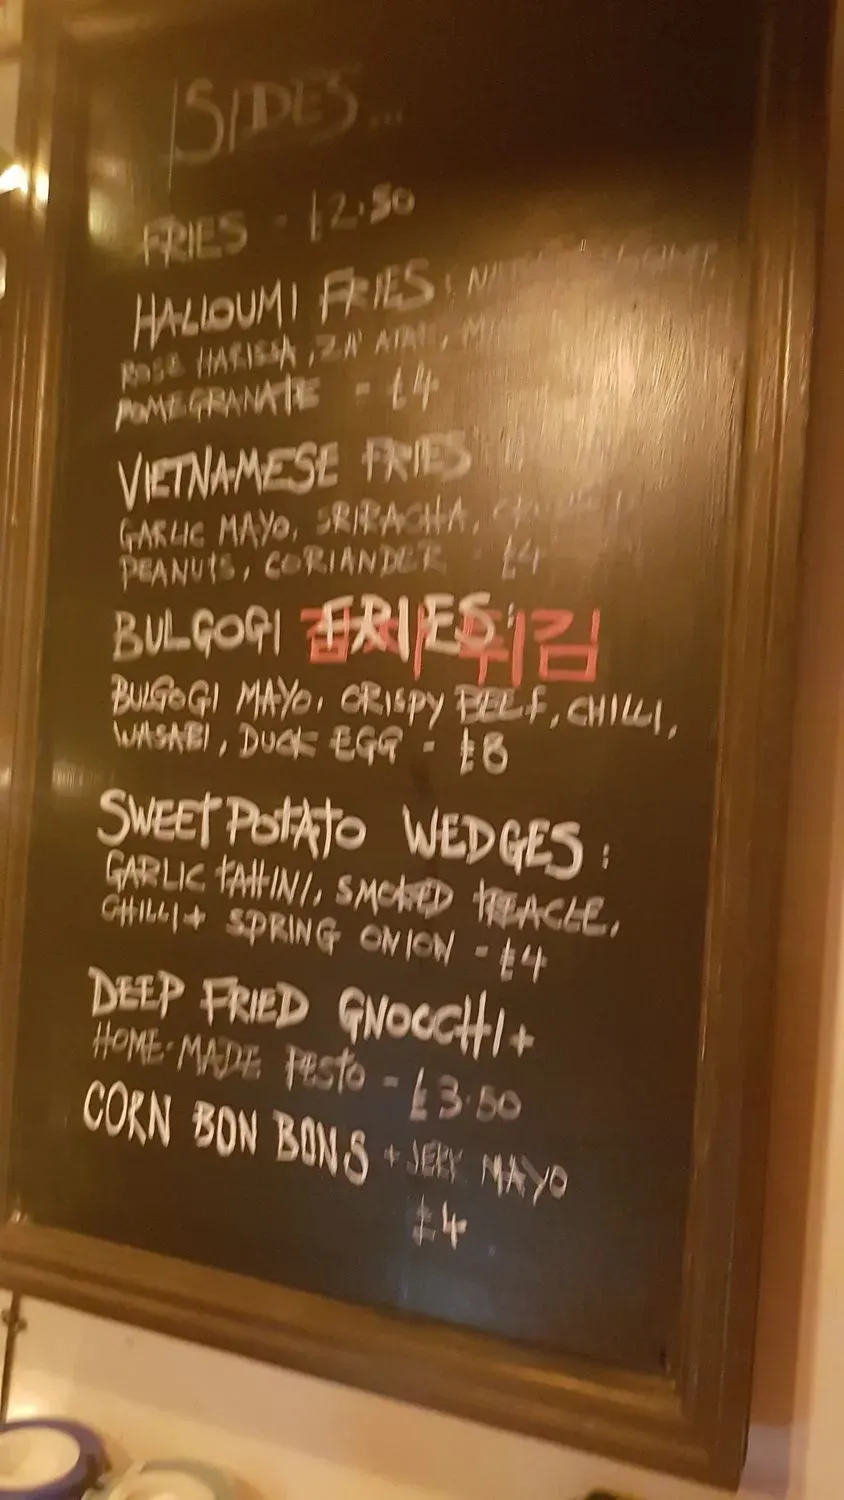 SIDES...
FRIES - £2.50
HALLOUMI FRIES:
ROSE HARISSA, ZA'ATAR,
POMEGRANATE - £4
VIETNAMESE FRIES
GARLIC MAYO, SRIRACHA,
PEANUTS, CORIANDER - £4
BULGOGI FRIES: 튀김
BULGOGI MAYO, CRISPY BEEF, CHILLI,
WASABI, DUCK EGG - £8
SWEET POTATO WEDGES:
GARLIC TAHINI, SMOKED TREACLE,
CHILLI + SPRING ONION - £4
DEEP FRIED GNOCCHI +
HOME-MADE PESTO - £3.50
CORN BON BONS + JERK MAYO
£4